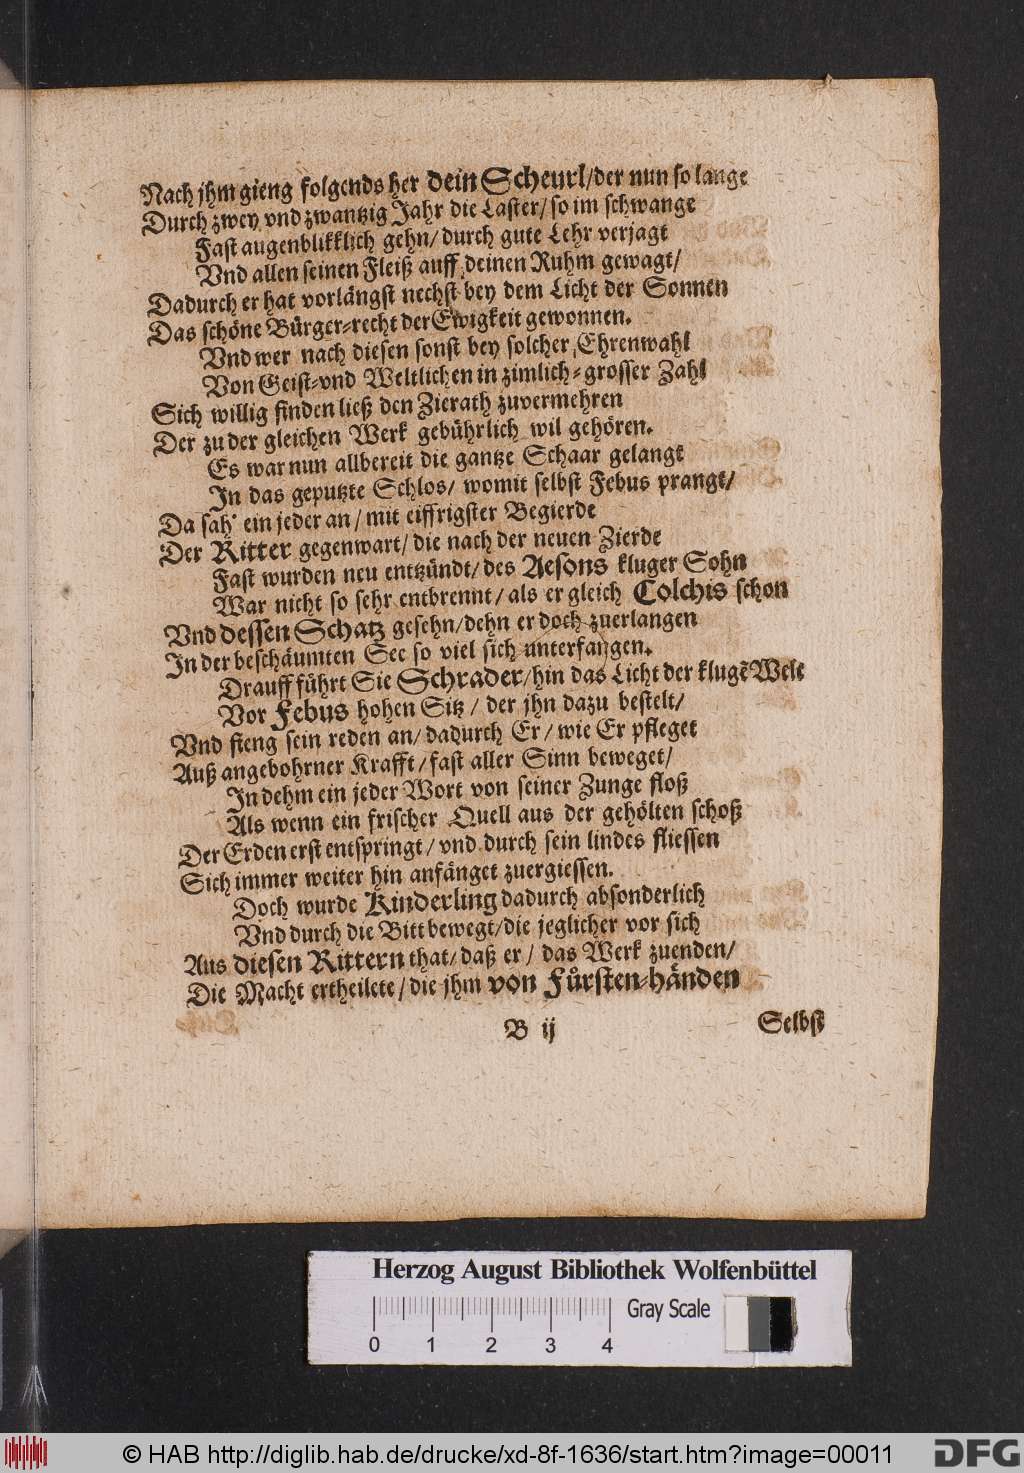 Nach jhm gieng folgends her dein Scheurl/der nun so lange
Durch zwey vnd zwantzig Jahr die Laster/ so im schwange
Fast augenblikklich gehn/ durch gute Lehr verjagt
Vnd allen seinen Fleiß auff deinen Ruhm gewagt/
Dadurch er hat vorlängst nechst bey dem Licht der Sonnen
Das schöne Bürger-recht der Ewigkeit gewonnen.
Vnd wer nach diesen sonst bey solcher Ehrenwahl
Von Geist-vnd Weltlichen in zimlich-grosser Zahl
Sich willig finden ließ den Zierath zuvermehren
Der zu der gleichen Werk gebührlich wil gehören.
Es war nun allbereit die gantze Schaar gelangt
In das geputzte Schlos/ womit selbst Febus prangt/
Da sah' ein jeder an / mit eiffrigster Begierde
Der Ritter gegenwart/ die nach der neuen Zierde
Fast wurden neu entzündt/ des Aesons kluger Sohn
War nicht so sehr entbrennt/ als er gleich Colchis schon
Vnd dessen Schatz gesehn/dehn er doch zuerlangen
In der beschäumten See so viel sich unterfangen.
Drauff führt Sie Schrader/hin das Licht der klugẽ Welt
Vor Febus hohen Sitz / der jhn dazu bestelt/
Vnd fieng sein reden an/ dadurch Er/ wie Er pfleget
Auß angebohrner Krafft/fast aller Sinn beweget/
In dehm ein jeder Wort von seiner Zunge floß
Als wenn ein frischer Quell aus der gehölten schoß
Der Erden erst entspringt/ vnd durch sein lindes fliessen
Sich immer weiter hin anfänget zuergiessen.
Doch wurde Kinderling dadurch absonderlich
Vnd durch die Bitt bewegt/die jeglicher vor sich
Aus diesen Rittern that/ daß er/ das Werk zuenden/
Die Macht ertheilete/ die jhm von Fürsten-händen
B ij Selbst
Herzog August Bibliothek Wolfenbüttel
Gray Scale
0 1 2 3 4
© HAB http://diglib.hab.de/drucke/xd-8f-1636/start.htm?image=00011
DFG